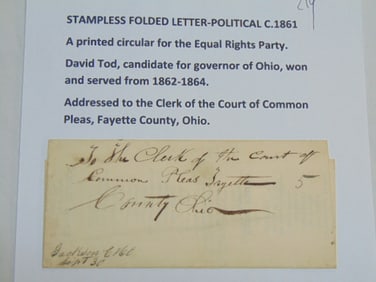 STAMPLESS FOLDED LETTER-POLITICAL C.1861
A printed circular for the Equal Rights Party.
David Tod, candidate for governor of Ohio, won
and served from 1862-1864.
Addressed to the Clerk of the Court of Common
Pleas, Fayette County, Ohio.
To the Clerk of the Court of
Common Pleas Fayette 5
County Ohio
Jackson C H O
Sept 30